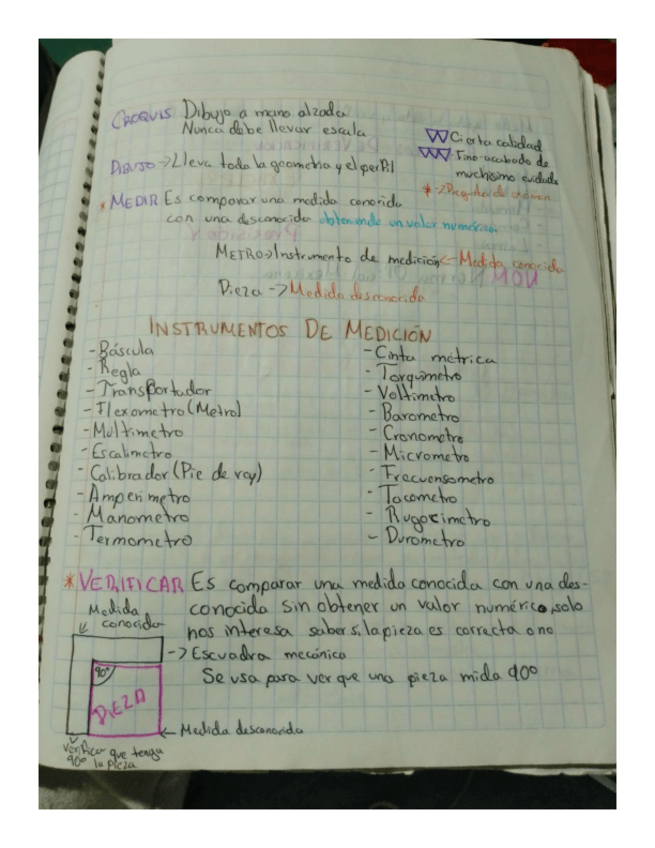 CROQUIS Dibujo a mano alzada
Nunca debe llevar escala
Cierta calidad
DIBUJO -> Lleva toda la geometria y el perfil
Fino-acabado de
muchisimo cuidado
* -> Pregunta de examen
* MEDIR Es comparar una medida conocida
con una desconocida obteniendo un valor numérico
METRO -> Instrumento de medición <- Medida conocida
Pieza -> Medida desconocida
INSTRUMENTOS DE MEDICIÓN
- Báscula
- Regla
- Transportador
- Flexometro (Metro)
- Multimetro
- Escalimetro
- Calibrador (Pie de rey)
- Amperimetro
- Manometro
- Termometro
- Cinta métrica
- Torquimetro
- Voltimetro
- Barometro
- Cronometro
- Micrometro
- Frecuensometro
- Tacometro
- Rugocimetro
- Durometro
* VERIFICAR Es comparar una medida conocida con una des-
conocida sin obtener un valor numérico, solo
nos interesa saber si la pieza es correcta o no
Medida
conocida
-> Escuadra mecánica
Se usa para ver que una pieza mida 90°
90°
PIEZA
<- Medida desconocida
Verificar que tenga
90° la pieza